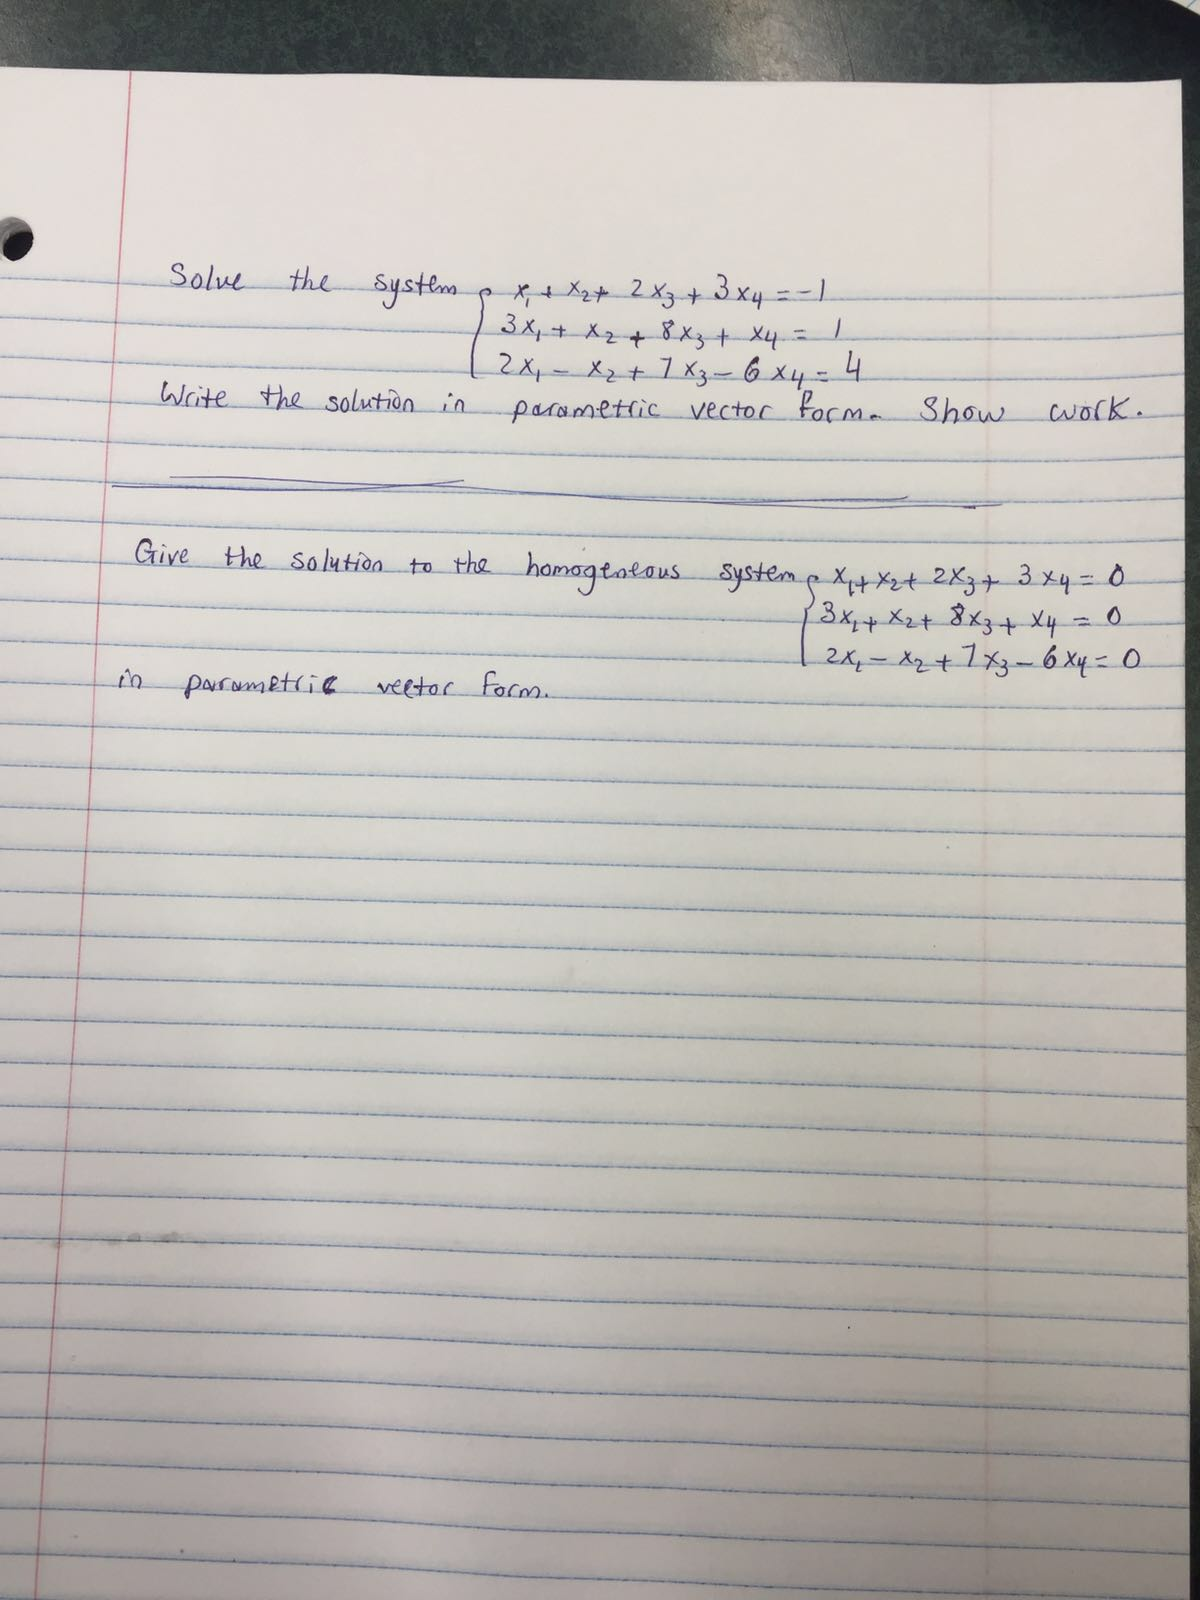 Solve the system { x₁ + x₂ + 2x₃ + 3x₄ = -1
3x₁ + x₂ + 8x₃ + x₄ = 1
2x₁ - x₂ + 7x₃ - 6x₄ = 4
Write the solution in parametric vector form. Show work.
Give the solution to the homogeneous system { x₁ + x₂ + 2x₃ + 3x₄ = 0
3x₁ + x₂ + 8x₃ + x₄ = 0
2x₁ - x₂ + 7x₃ - 6x₄ = 0
in parametric vector form.